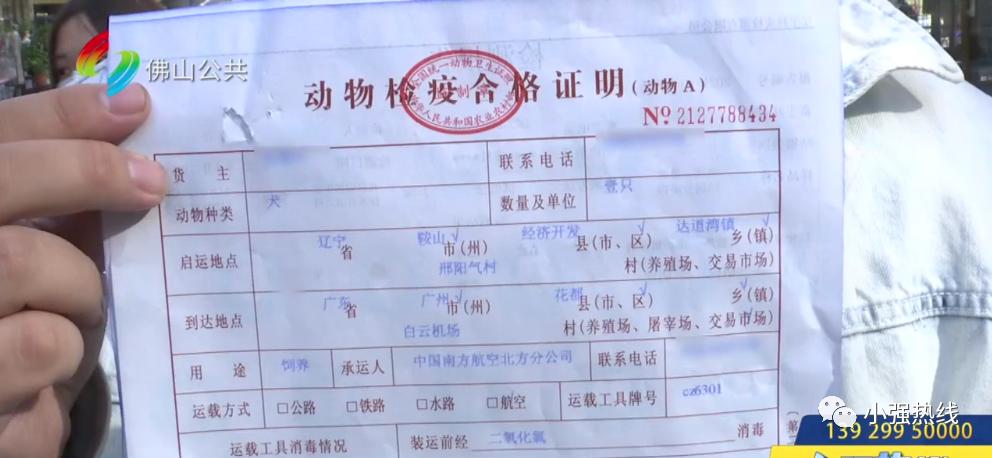 佛山公共
动物检疫合格证明(动物A)
全国统一动物卫生证明
监制章
中华人民共和国农业农村部
№ 2127788434
货 主 联系电话
动物种类 犬 数量及单位 壹只
辽宁 鞍山 √ 经济开发 √ 达道湾镇 √
启运地点 省 市(州) 县(市、区) 乡(镇)
邢阳气村 村(养殖场、交易市场)
广东 广州 √ 花都 √ √
到达地点 省 市(州) 县(市、区) 乡(镇)
白云机场 村(养殖场、屠宰场、交易市场)
用 途 饲养 承运人 中国南方航空北方分公司 联系电话
运载方式 □公路 □铁路 □水路 □航空 运载工具牌号 cz6301
运载工具消毒情况 装运前经 二氧化氯 消毒
小强热线
139 299 50000